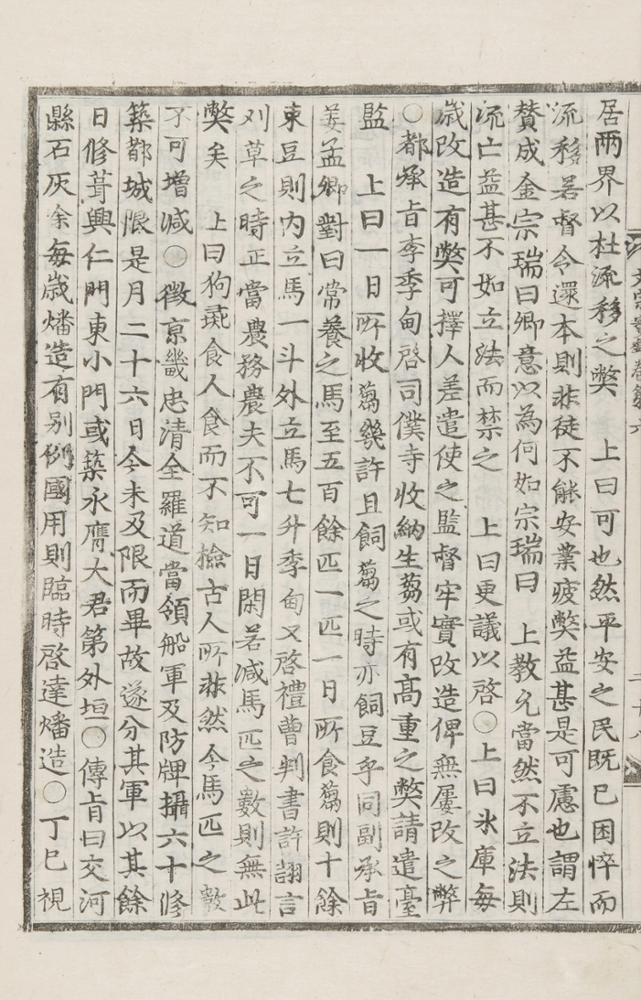 居兩界以杜流移之弊　上曰可也然平安之民旣已困悴而
流移若督令還本則非徒不能安業疲弊益甚是可慮也謂左
賛成金宗瑞曰卿意以為何如宗瑞曰　上教允當然不立法則
流亡益甚不如立法而禁之　上曰更議以啓○上曰氷庫每
歲改造有弊可擇人差遣使之監督牢實改造俾無屢改之弊
○都承旨李季甸啓司僕寺收納生蒭或有高重之弊請遣臺
監　上曰一日所收蒭幾許且飼蒭之時亦飼豆乎同副承旨
姜孟卿對曰常養之馬至五百餘匹一匹一日所食蒭則十餘
束豆則內立馬一斗外立馬七升季甸又啓禮曹判書許詡言
刈草之時正當農務農夫不可一日閑若減馬匹之數則無此
弊矣　上曰狗彘食人食而不知檢古人所非然今馬匹之數
不可增減○徵京畿忠清全羅道當領船軍及防牌攝六十修
築都城限是月二十六日今未及限而畢故遂分其軍以其餘
日修葺興仁門東小門或築永膺大君第外垣○傳旨曰交河
縣石灰余每歲燔造有別例國用則臨時啓達燔造○丁巳視